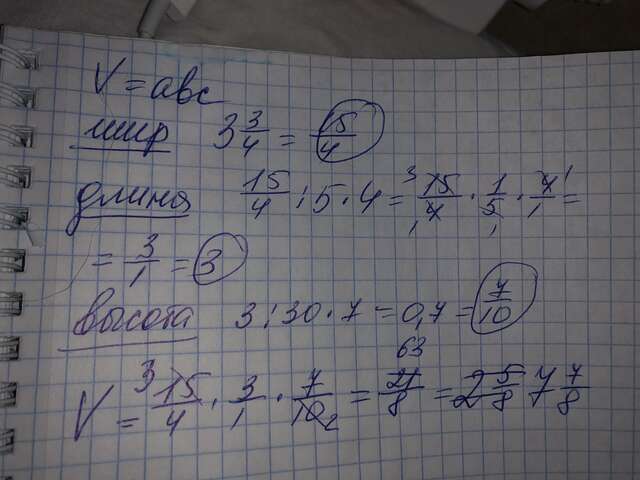 V = abc
шир 3 3/4 = 15/4
длина 15/4 : 5 · 4 = 15/4 · 1/5 · 4/1 =
= 3/1 = 3
высота 3 : 30 · 7 = 0,7 = 7/10
V = 15/4 · 3/1 · 7/10 = 63/8 = 7 7/8